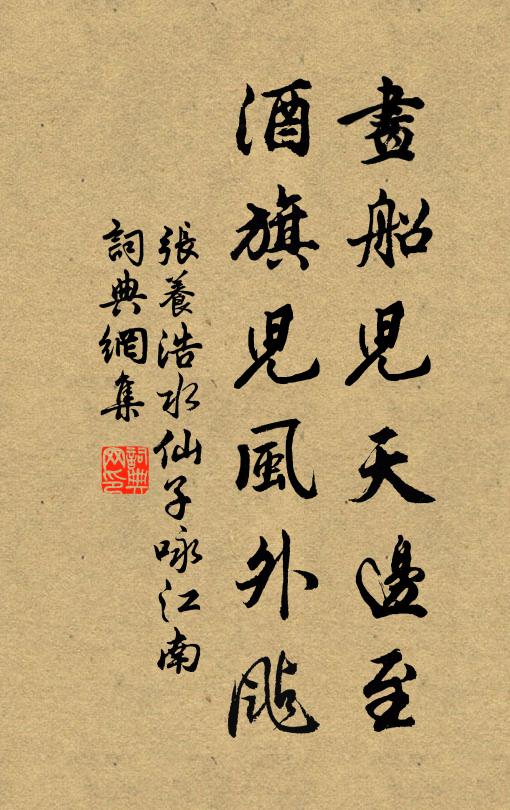 畫船兒天邊至
酒旗兒風外颭
張養浩水仙子咏江南
詞典網集
詞典網印